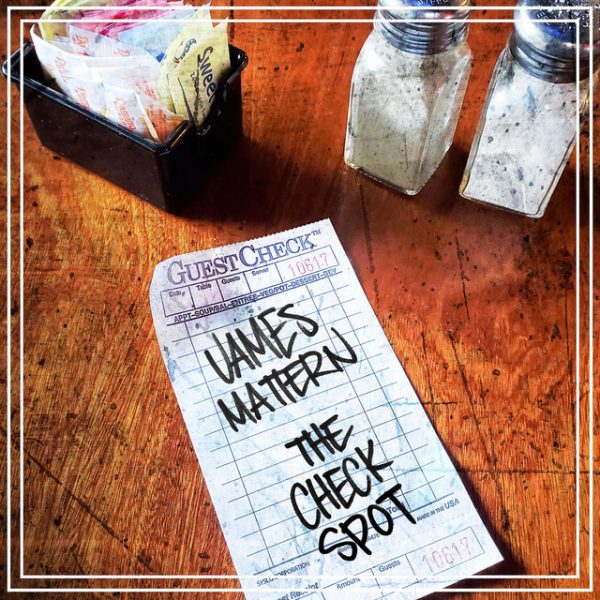 Swee
GUESTCHECK™
Date Table Guests Server 10617
APPT-SOUP/SAL-ENTREE-VEG/POT-DESSERT-BEV
JAMES
MATTERN
THE
CHECK
SPOT
MADE IN THE USA
SYSCO CORPORATION
Amount Guests 10617